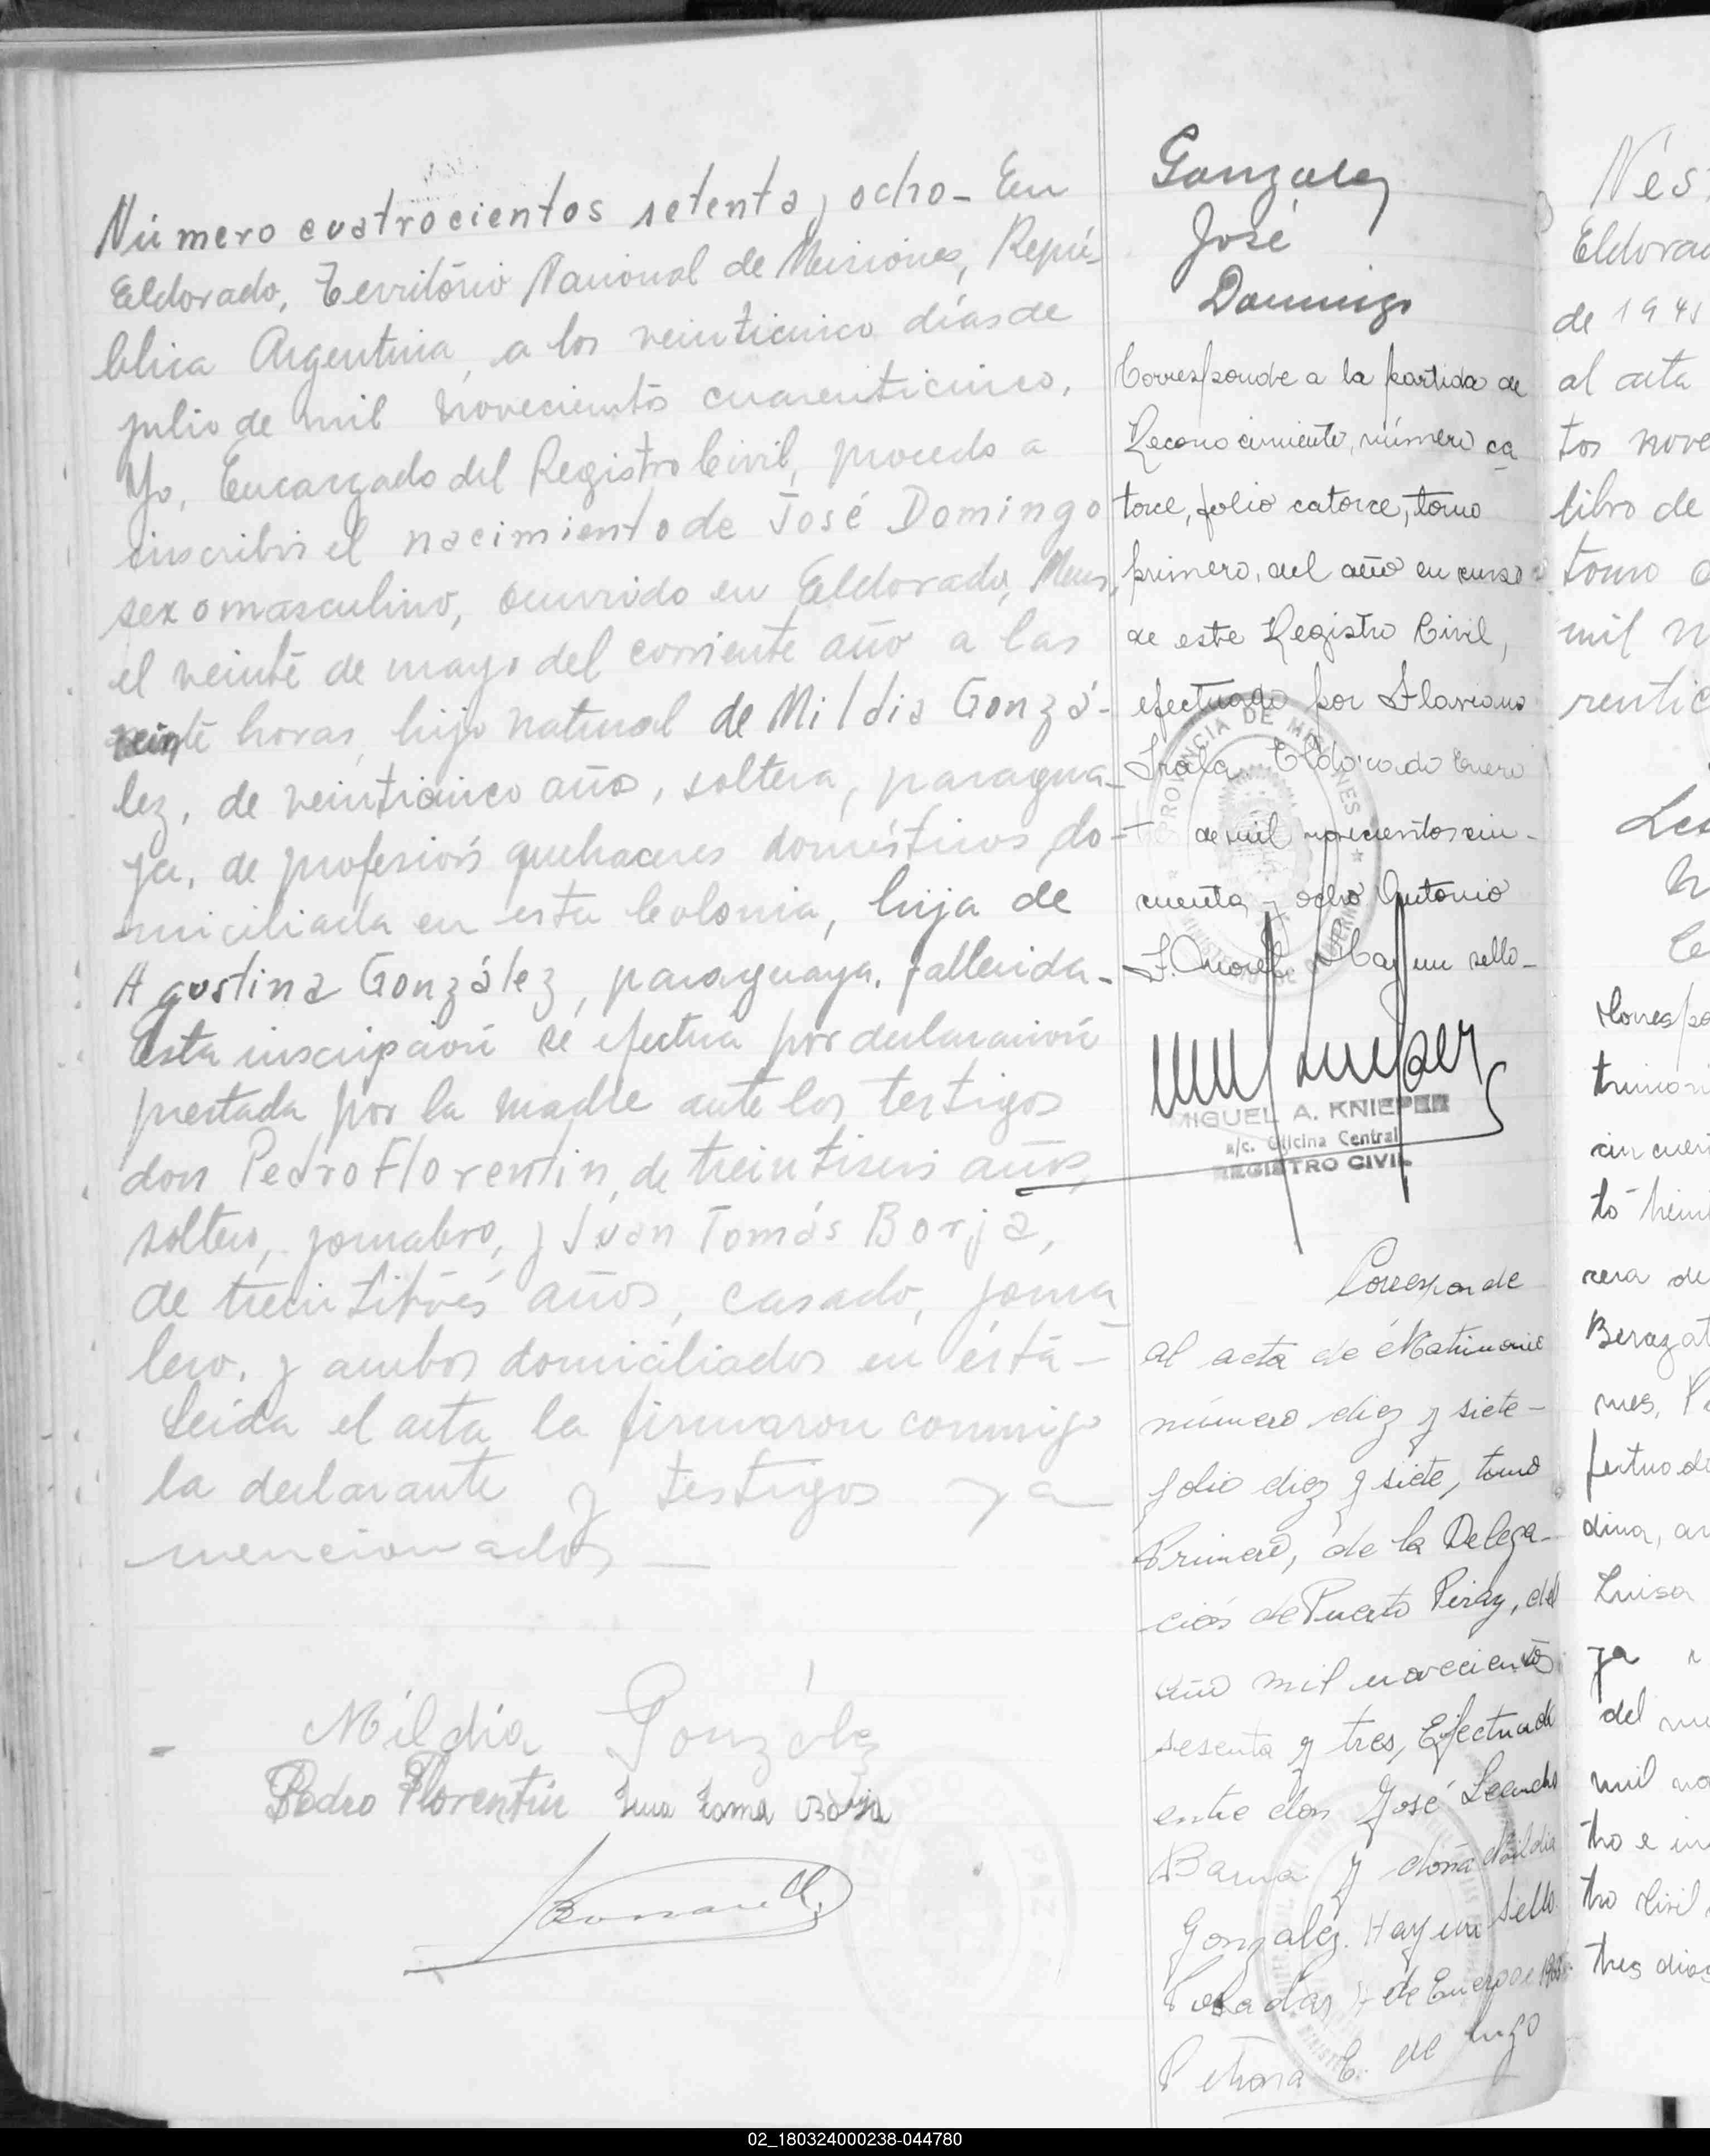 Número cuatrocientos setenta y ocho - En
Eldorado, Território Nacional de Misiones, Repú-
blica Argentina, a los veinticinco días de
julio de mil novecientos cuarenticinco,
Yo, Encargado del Registro Civil, procedo a
inscribir el nacimiento de José Domingo
sexo masculino, ocurrido en Eldorado, Mnes,
el veinte de mayo del corriente año a las
veinte horas, hijo natural de Mildia Gonzá-
lez, de veinticinco años, soltera, paragua-
ya, de profesión quehaceres domésticos do-
miciliada en esta Colonia, hija de
Agustina González, paraguaya, fallecida-
Esta inscripción se efectúa por declaración
prestada por la madre ante los testigos
don Pedro Florentin, de treintiseis años,
soltero, jornalero, y Juan Tomás Borja,
de treintitrés años, casado, jorna
lero, y ambos domiciliados en ésta -
Leída el acta la firmaron conmigo
la declarante y testigos ya
mencionados —
Mildia González
Pedro Florentin Juan Toma Borja
Gonzalez
José
Domingo
Corresponde a la partida de
Reconocimiento, número ca
torce, folio catorce, tomo
primero, del año en curso
de este Registro Civil,
efectuado por Flaviano
Irala. Eldorado Enero
de mil novecientos cin-
cuenta y ocho Antonio
F. Hay un sello-
PROVINCIA DE MISIONES
MIGUEL A. KNIEPER
a/c. Oficina Central
REGISTRO CIVIL
Corresponde
al acta de Matrimonio
número diez y siete-
folio diez y siete, tomo
Primero, de la Delega-
ción de Puerto Piray, del
año mil novecientos
sesenta y tres, Efectuado
entre don José Leandro
y doña Mildia
Gonzalez. Hay un sello.
Posadas, de Enero de
Petrona E. de
JUZGADO DE PAZ
Nés
Eldorad
de 1945
al acta
tos nove
libro de
tomo
mil n
rentic
cin cuen
rera de
Berazat
nes, P
dina, an
Luisa
ya
del
mil no
tro e in
tro Civil
tres dias
02_180324000238-044780